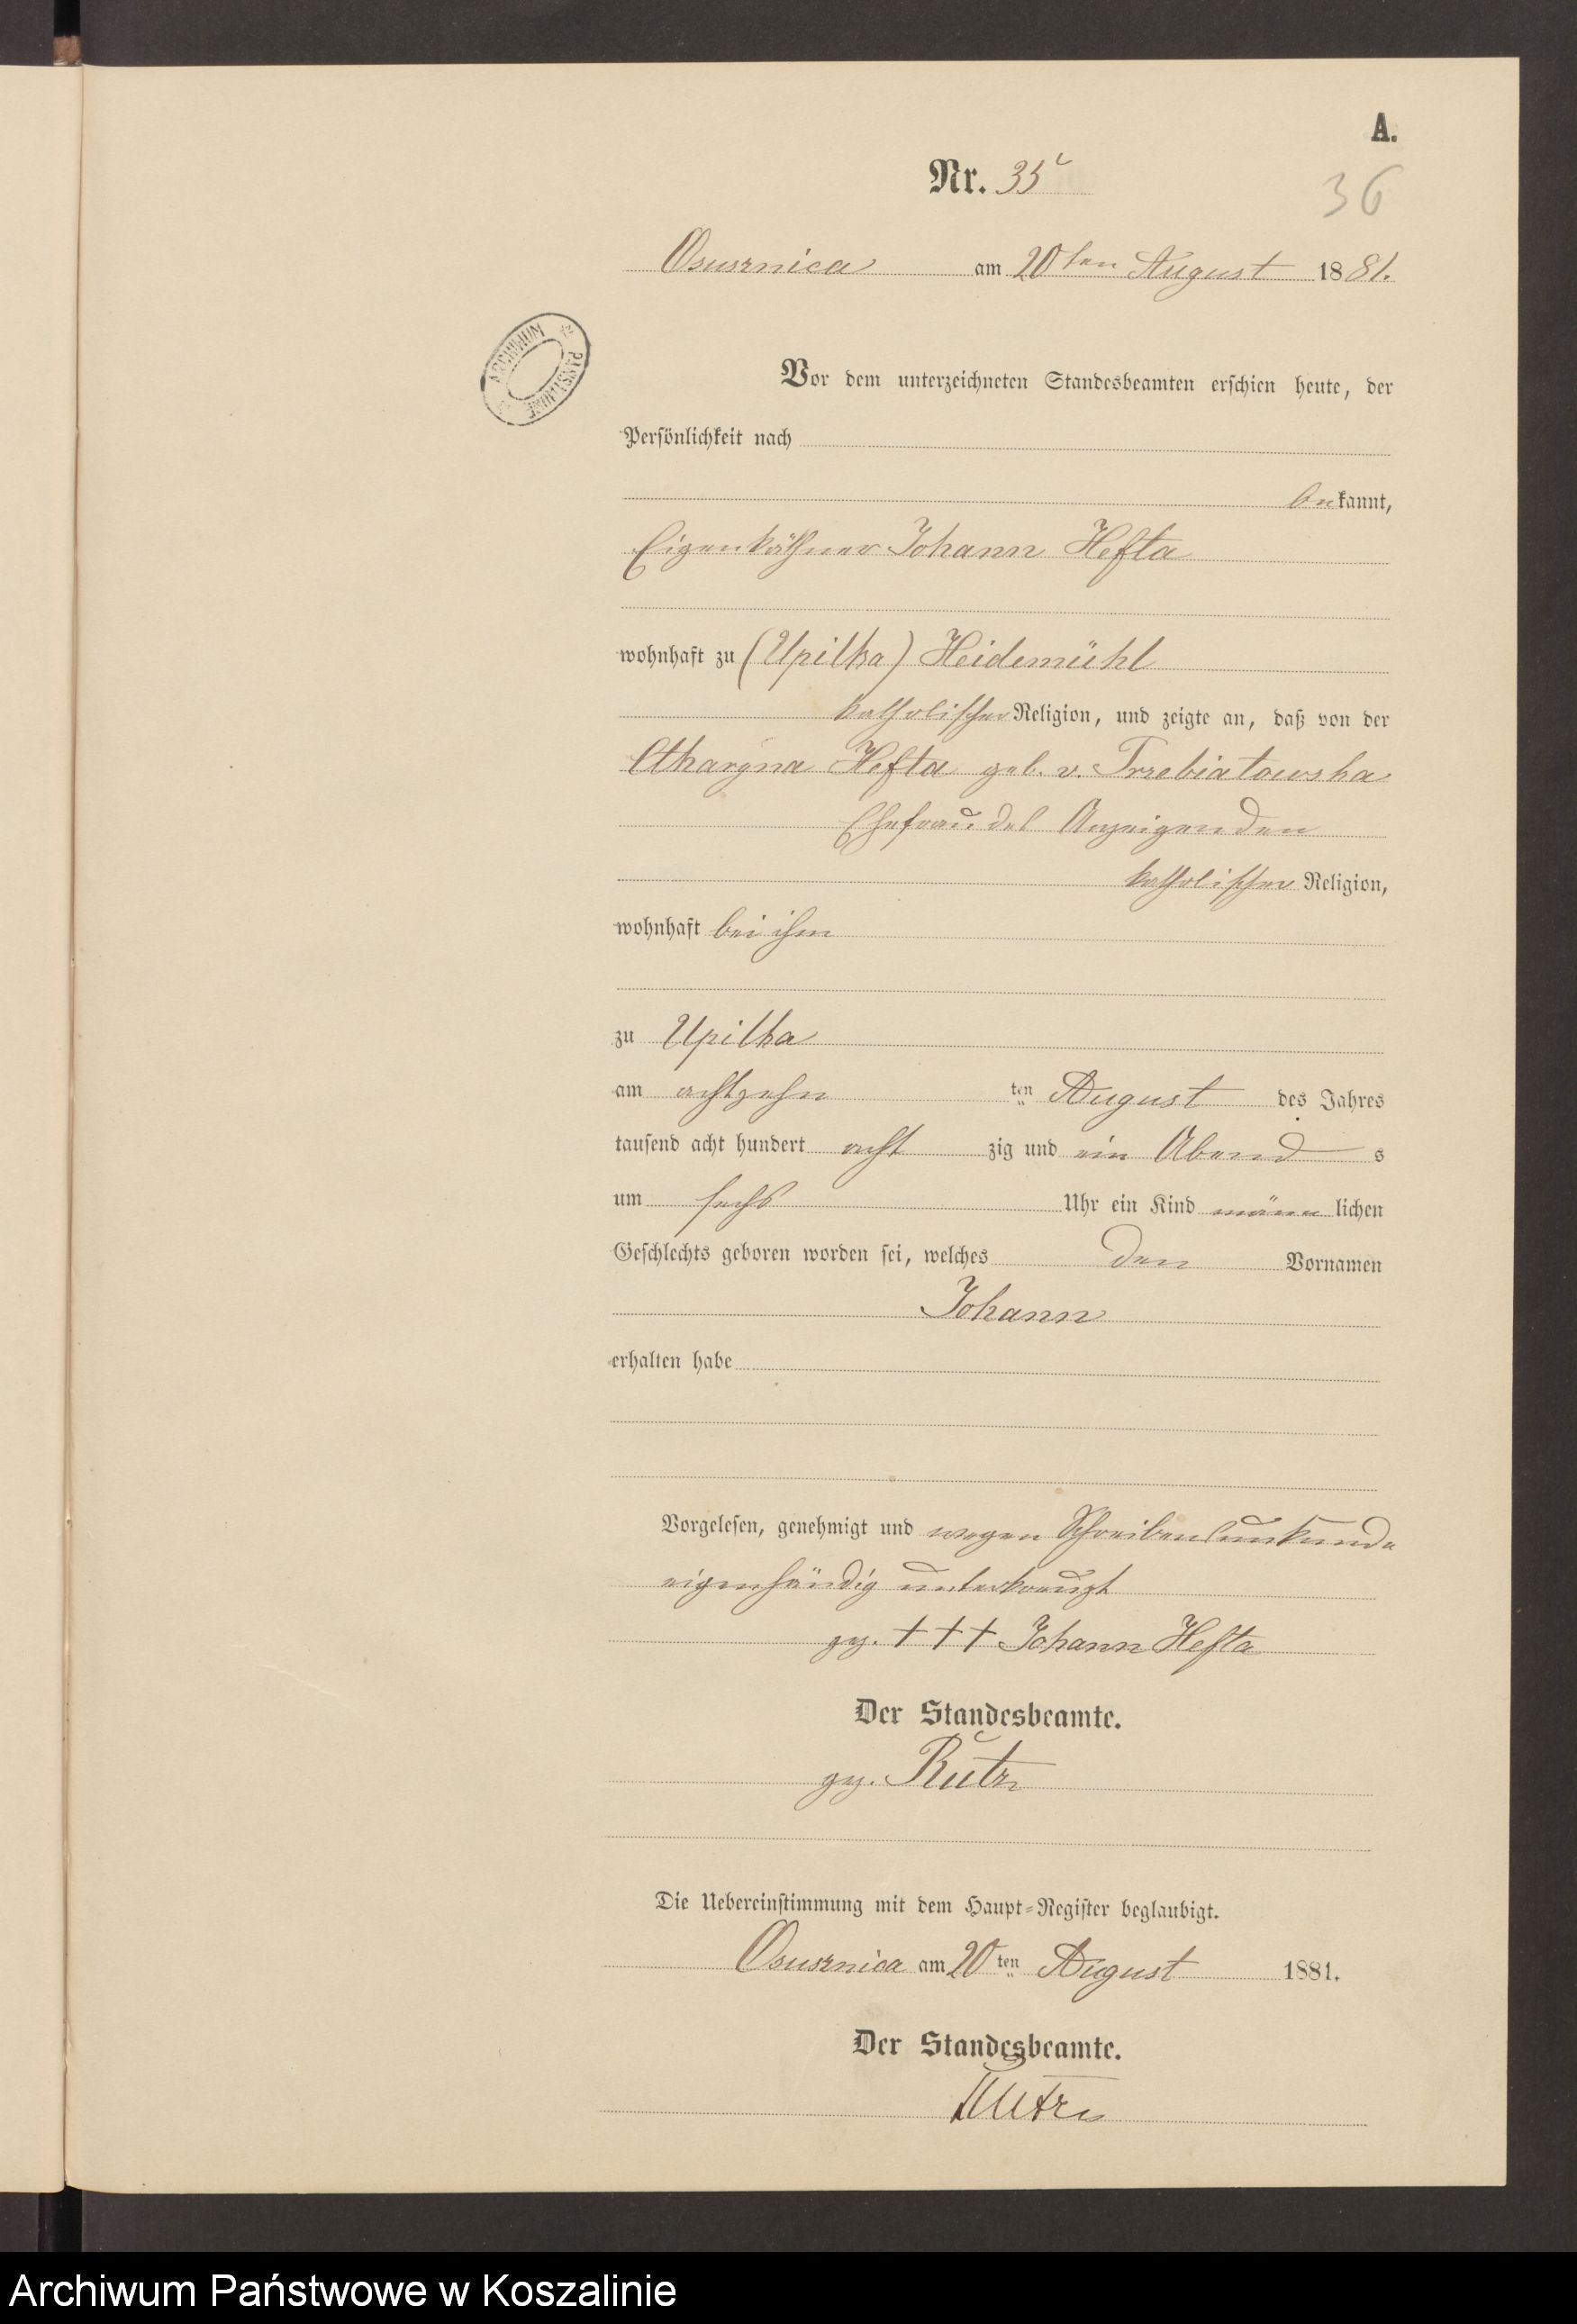 A.
Nr. 35
36
Osusznica am 20ten August 1881.
ARCHIWUM PAŃSTWOWE
Vor dem unterzeichneten Standesbeamten erschien heute, der
Persönlichkeit nach
bekannt,
Eigenkäthner Johann Hefta
wohnhaft zu (Upilka) Heidemühl
katholischer Religion, und zeigte an, daß von der
Hefta geb. v. Trzebiatowska
Ehefrau des Anzeigenden
katholischer Religion,
wohnhaft bei ihm
zu Upilka
am achtzehn ten August des Jahres
tausend acht hundert acht zig und ein Abend s
um sechs Uhr ein Kind männlichen
Geschlechts geboren worden sei, welches den Vornamen
Johann
erhalten habe
Vorgelesen, genehmigt und wegen Schreibensunkunde
eigenhändig unterkreuzt
gez. † † † Johann Hefta
Der Standesbeamte.
gez. Rutz
Die Uebereinstimmung mit dem Haupt-Register beglaubigt.
Osusznica am 20 ten August 1881.
Der Standesbeamte.
Rutz
Archiwum Państwowe w Koszalinie